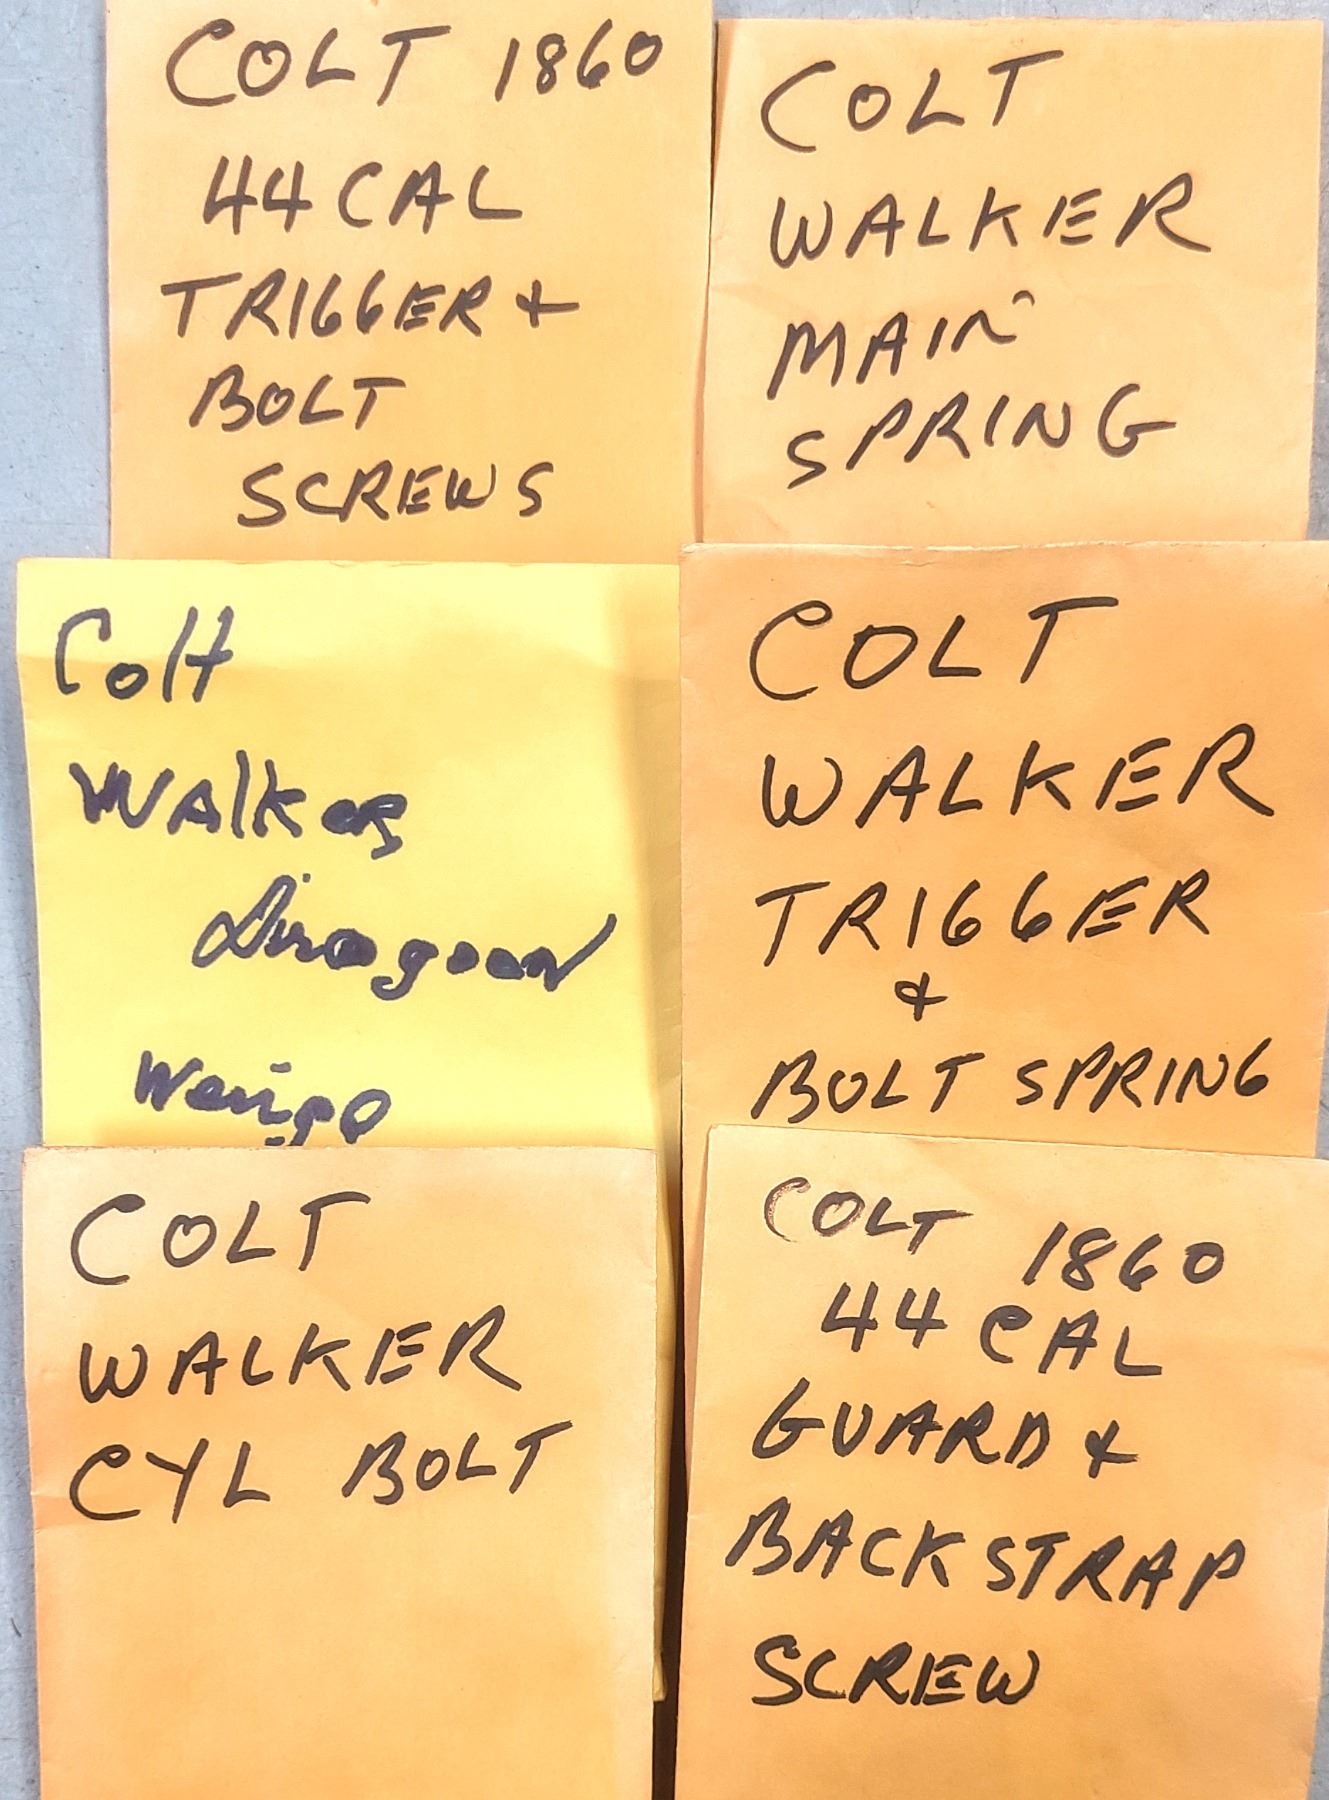 COLT 1860
44 CAL
TRIGGER +
BOLT
SCREWS
COLT
WALKER
MAIN
SPRING
Colt
Walker
Dragoon
COLT
WALKER
TRIGGER
&
BOLT SPRING
COLT
WALKER
CYL BOLT
COLT 1860
44 CAL
GUARD &
BACKSTRAP
SCREW